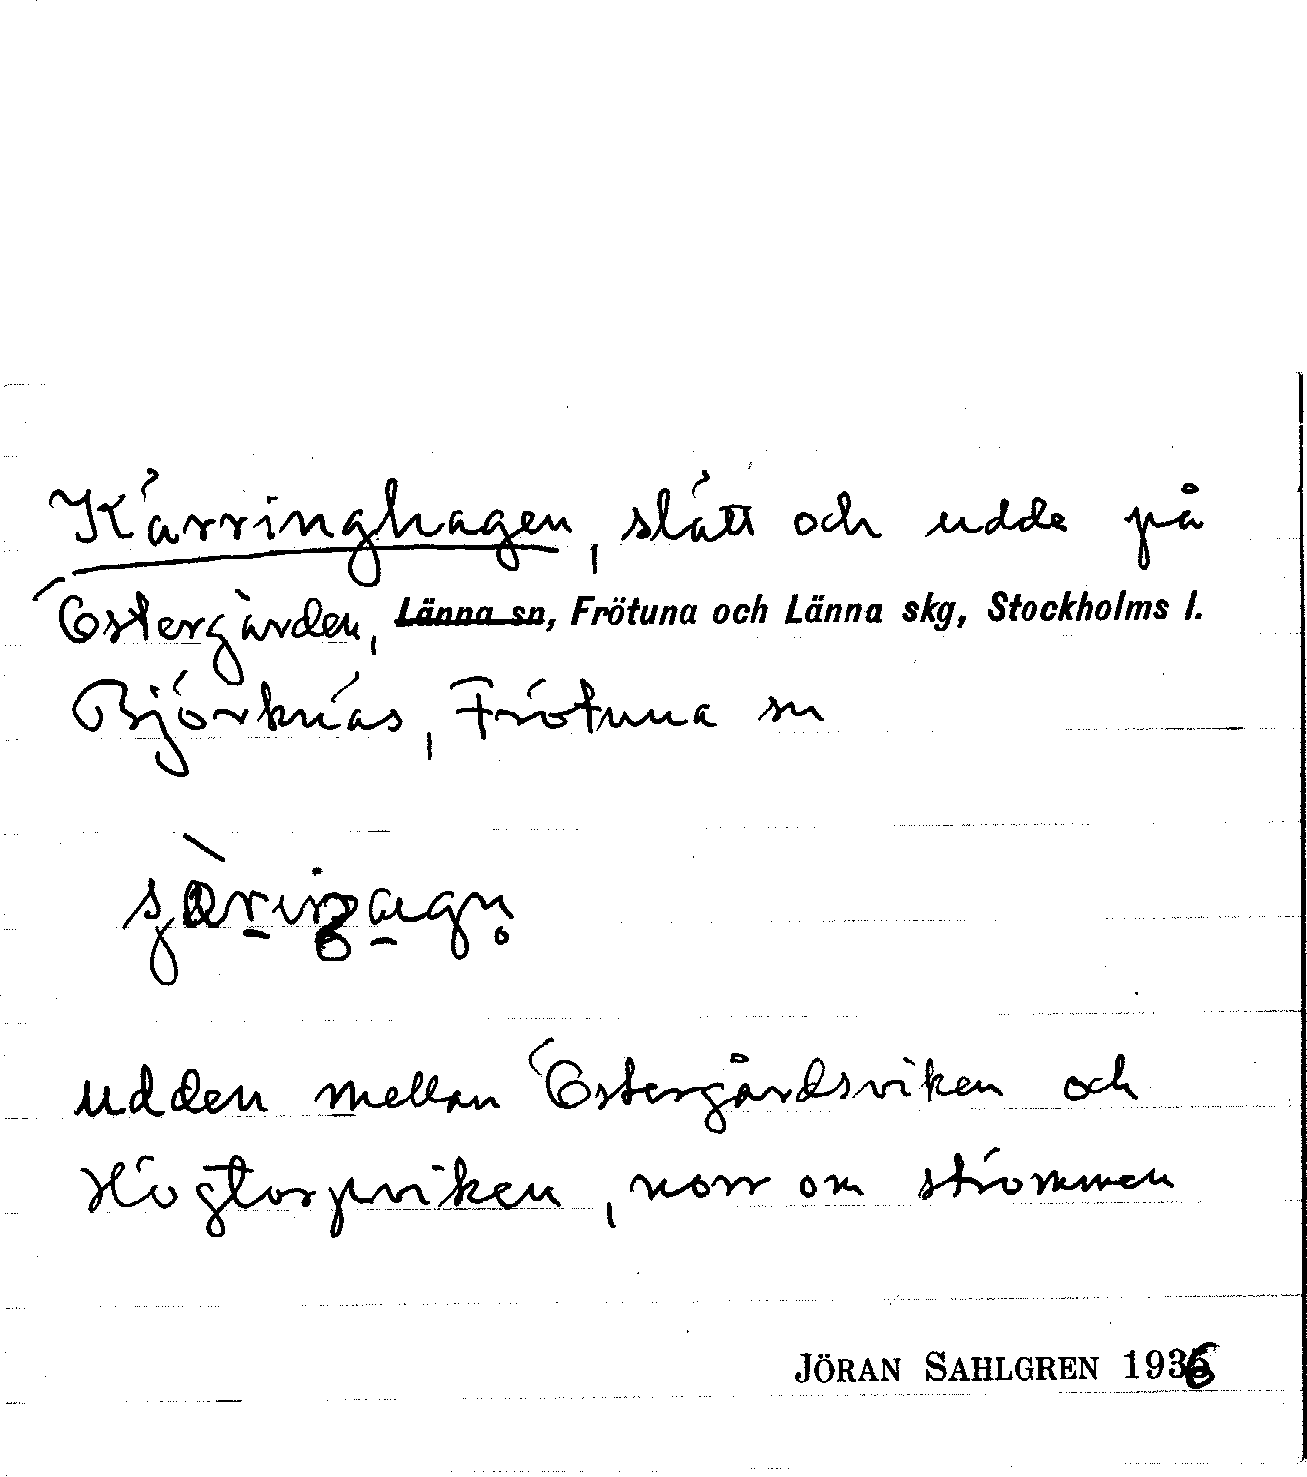 Kärringhagen, slått och udde på
Östergården, Länna sn, Frötuna och Länna skg, Stockholms l.
Björknäs, Frötuna sn
udden mellan Östergårdsviken och
Högtorpviken, norr om strömmen
JÖRAN SAHLGREN 1936